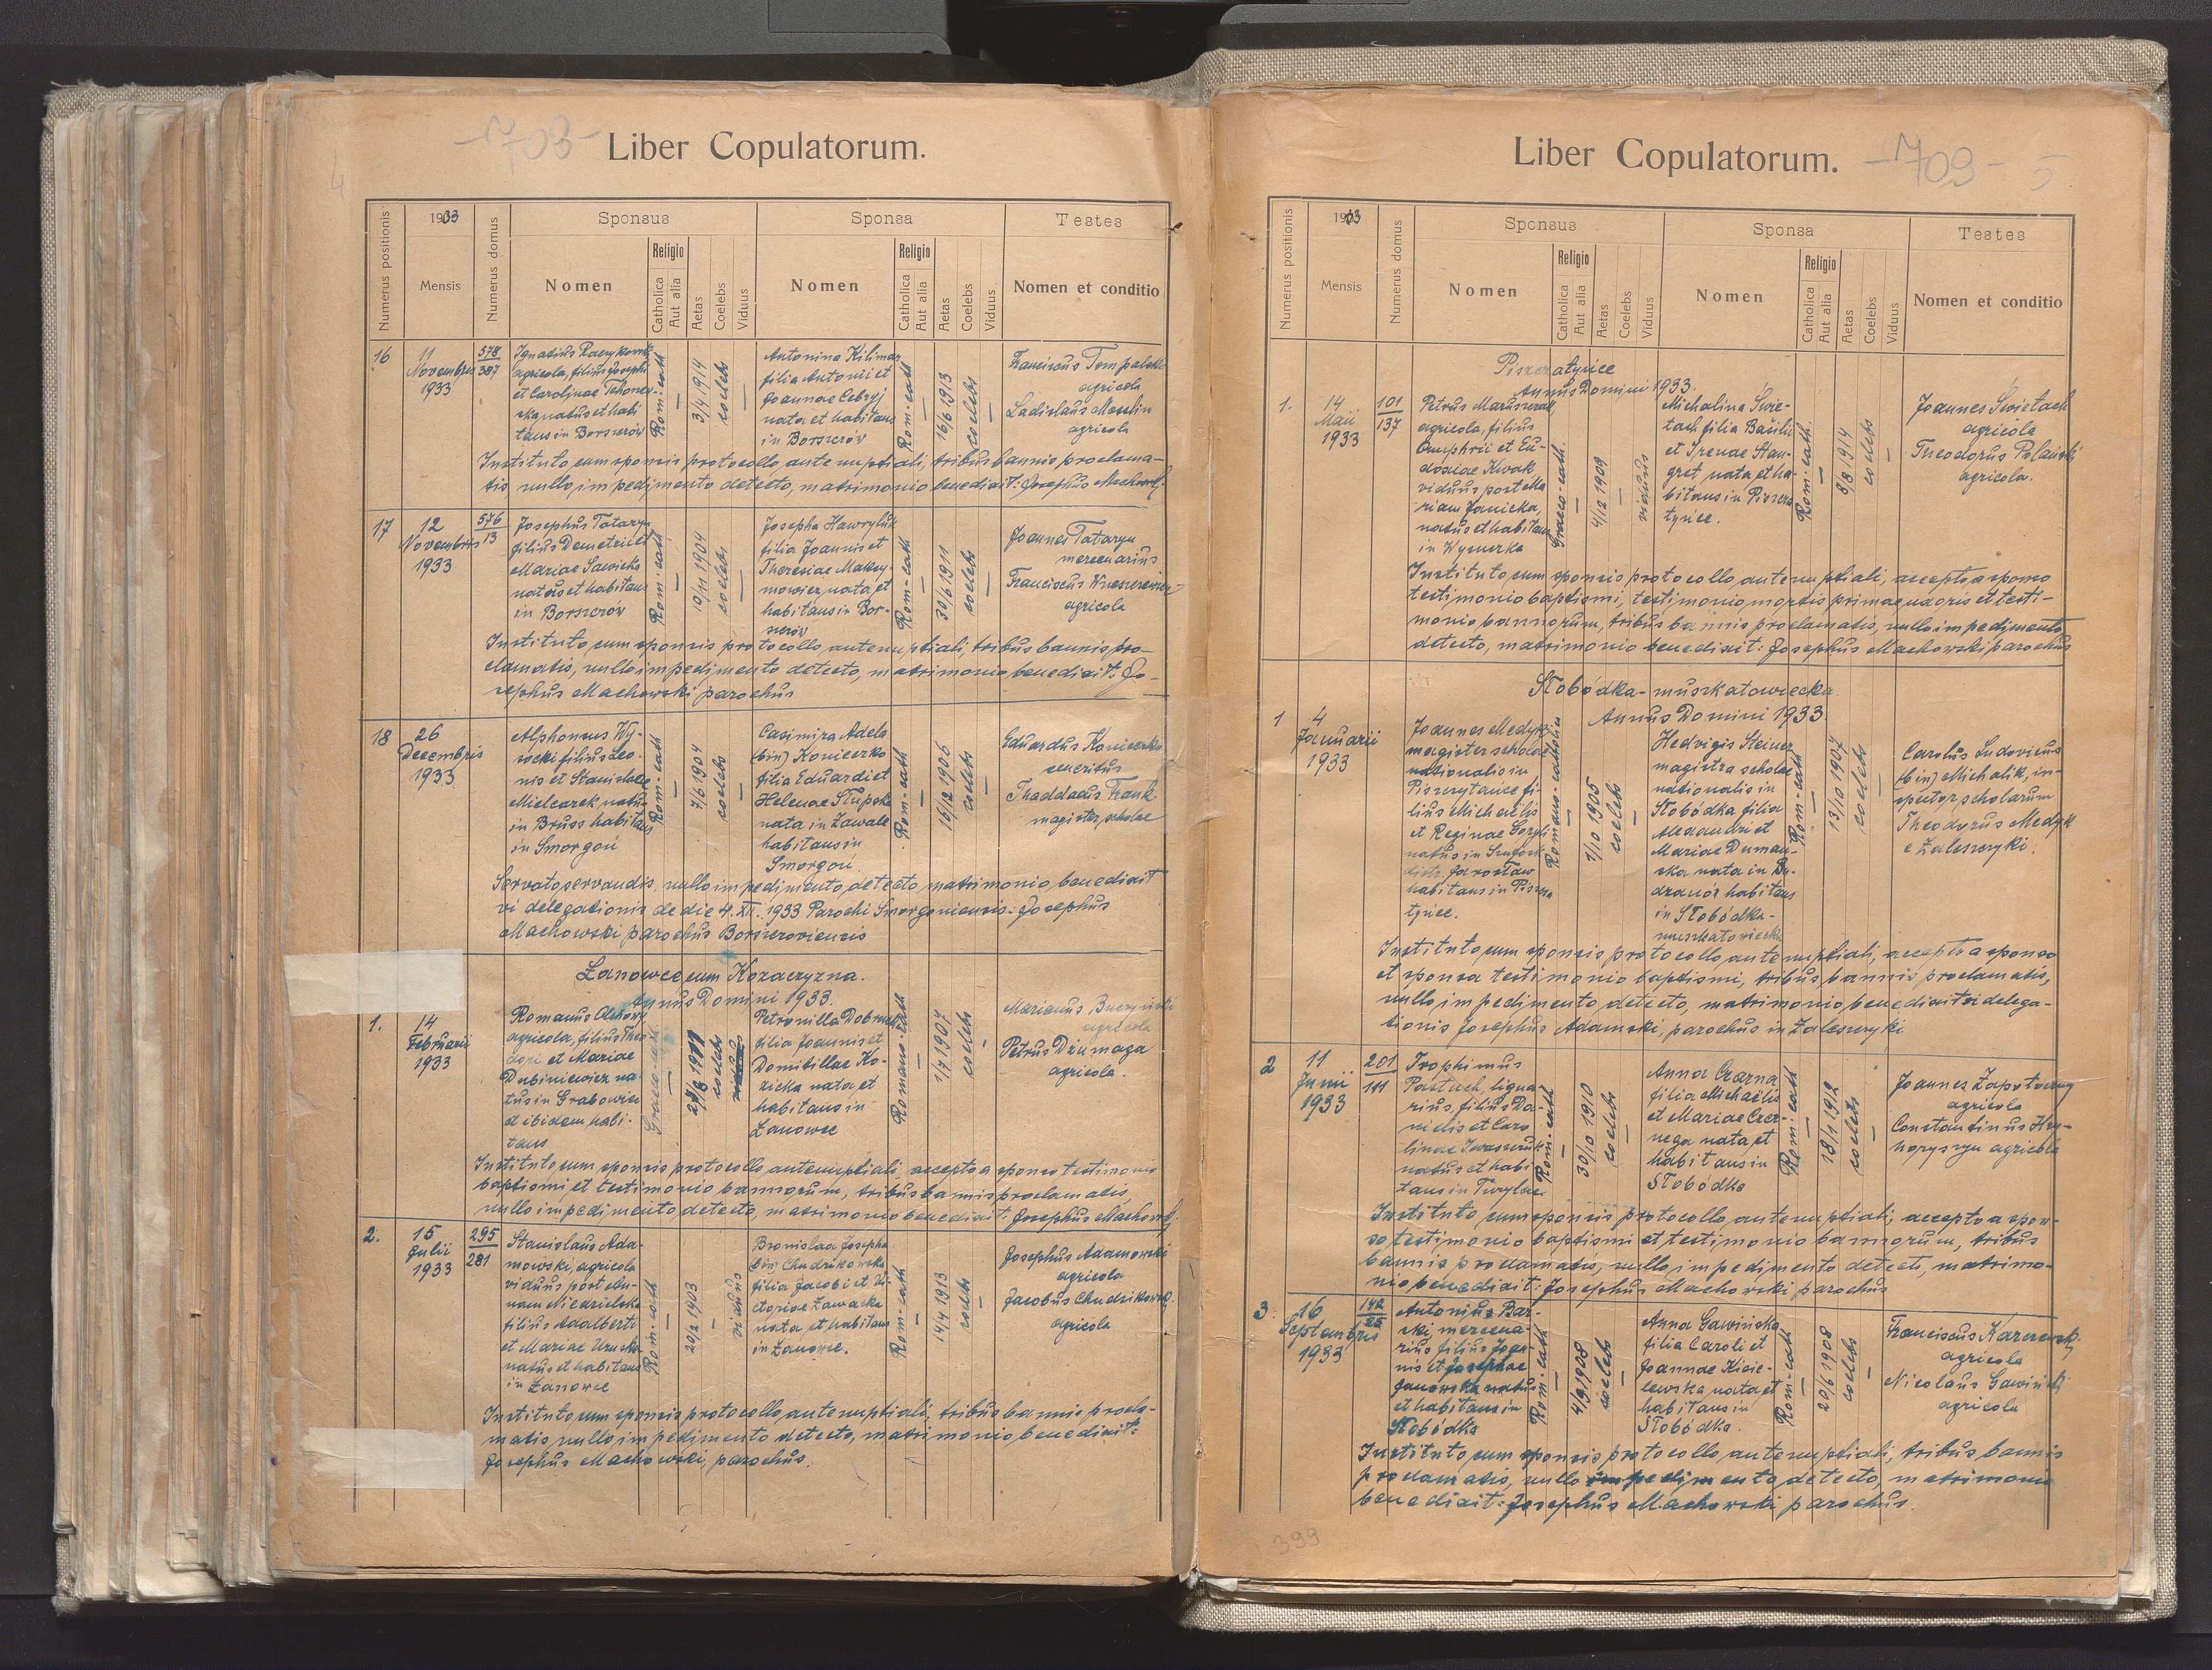 -703-
Liber Copulatorum.
4
Numerus positionis
1933
Mensis
Numerus domus
Sponsus
Nomen
Religio
Catholica
Aut alia
Aetas
Coelebs
Viduus
Sponsa
Nomen
Religio
Catholica
Aut alia
Aetas
Coelebs
Viduus
Testes
Nomen et conditio
16
11
Novembris
1933
578
387
Ignatius Raczykowski
agricola, filius Josephi
et Carolinae
natus et habi
tans in Borszczów
Rom: cath
3/4 1914
coelebs
Antonina Kilimar
filia Antonii et
Joannae Cebryj
nata et habitans
in Borszczów
Rom-cath
16/6 1913
coelebs
Franciscus Tompalski
agricola
Ladislaus Maselin
agricola
Instituto cum sponsis protocollo antenuptiali, tribus bannis proclama-
tis nullo impedimento detecto, matrimonio benedixit: Josephus Machowski
17
12
Novembris
1933
576
13
Josephus Tataryn
filius Demetrii et
Mariae Sawicka
natus et habitans
in Borszczow
Rom: cath
19/11 1904
coelebs
Josepha Hawryluk
filia Joannis et
Theresiae Maksy-
mowicz, nata et
habitans in Bor-
szczów
Rom-cath
30/6 1911
coelebs
Joannes Tataryn
mercenarius
Franciscus
agricola
Instituto cum sponsis protocollo antenuptiali, tribus bannis pro-
clamatis, nullo impedimento detecto, matrimonio benedixit: Jo-
sephus Machowski parochus
18
26
Decembris
1933
Alphonsus Wy-
socki filius Leo-
nis et Stanislaae
Mielcarek natus
in Bruss habitans
in Smorgoń
Rom-cath
7/6 1904
coelebs
Casimira Adela
(bin) Konieczko
filia Eduardi et
Helenae Słupska
nata in Zawale
habitans in
Smorgoń
Rom-cath
16/12 1906
coelebs
Eduardus Konieczko
emeritus
Thaddaeus Frank
magister scholae
Servatis servandis, nullo impedimento detecto matrimonio benedixit
vi delegationis de die 4. XII. 1933 Parochi Smorgoniensis: Josephus
Machowski parochus Borszczoviensis
Łanowce cum Kozaczyzna.
Annus Domini 1933.
1.
14
Februarii
1933
Romanus
agricola, filius Theo
dori et Mariae
Dubiniewicz na-
tus in Grabowiec
et ibidem habi-
tans
Graeco-cath
coelebs
viduus
Petronilla
filia Joannis et
Domitillae Ko-
zicka nata et
habitans in
Łanowce
Romano-cath
1/7 1907
coelebs
Marianus Buczyński
agricola
Petrus Dżumaga
agricola.
Instituto cum sponsis protocollo antenuptiali accepto a sponso testimonio
baptismi et testimonio bannorum, tribus bannis proclamatis,
nullo impedimento detecto, matrimonio benedixit: Josephus Machowski
2.
15
Julii
1933
295
281
Stanislaus Ada-
mowski, agricola
viduus post An-
nam Niedzielska
filius Adalberti
et Mariae Uruska
natus et habitans
in Łanowce
Rom-cath
20/2 1903
viduus
Bronislaa Josepha
bin Chudzikowska
filia Jacobi et Vi-
ctoriae Zawacka
nata et habitans
in Łanowce.
Rom-cath
14/4 1913
coelebs
Josephus Adamowski
agricola
Jacobus Chudzikowski
agricola
Instituto cum sponsis protocollo antenuptiali, tribus bannis procla-
matis nullo impedimento detecto, matrimonio benedixit:
Josephus Machowski, parochus.
Liber Copulatorum.
-709-
5
Numerus positionis
1933
Mensis
Numerus domus
Sponsus
Nomen
Religio
Catholica
Aut alia
Aetas
Coelebs
Viduus
Sponsa
Nomen
Religio
Catholica
Aut alia
Aetas
Coelebs
Viduus
Testes
Nomen et conditio
Piszczatyńce
Annus Domini 1933.
1.
14
Maii
1933
101
137
Petrus Maruszczak
agricola, filius
Onuphrii et Eu-
doxiae Nowak
viduus post Ma
riam Janicka,
natus et habitans
in Wysuczka
Graeco-cath.
4/12 1909
viduus
Michalina Świe-
tach filia Basilii
et Irenae Stan-
gret nata et ha-
bitans in Piszcza
tyńce.
Rom-cath.
8/8 1914
coelebs
Joannes Świetach
agricola
Theodorus Polański
agricola.
Instituto cum sponsis protocollo antenuptiali, accepto a sponso
testimonio baptismi, testimonio mortis primae uxoris et testi-
monio bannorum, tribus bannis proclamatis, nullo impedimento
detecto, matrimonio benedixit: Josephus Machowski parochus
Słobódka-muszkatowiecka
Annus Domini 1933.
1
4
Januarii
1933
Joannes Medyk
magister scholae
nationalis in
Piszczytance fi-
lius Michaëlis
et Reginae
natus in
distr. Jarosław
habitans in Piszcza
tyńce.
Romano-catholica
1/10 1905
coelebs
Hedvigis Steiner
magistra scholae
nationalis in
Słobódka filia
Alexandri et
Mariae Duman-
ska nata in Bu-
dzanów habitans
in Słobódka-
muszkatowiecka
Rom-cath
13/10 1907
coelebs
Carolus Ludovicus
(bin) Michalik, in-
spector scholarum
Theodorus Medyk
e Zaleszczyki.
Instituto cum sponsis protocollo antenuptiali, accepto a sponso
et sponsa testimonio baptismi, tribus bannis proclamatis,
nullo impedimento detecto, matrimonio benedixit vi delega-
tionis Josephus Adamski, parochus in Zaleszczyki
2
11
Junii
1933
201
111
Trophimus
Pastuch ligna
rius, filius Da-
nielis et Caro
linae
natus et habi
tans in Turylcze
Rom-cath
30/10 1910
coelebs
Anna Czarna
filia Michaëlis
et Mariae Czer
nega nata et
habitans in
Słobódka
Rom-cath
18/1 1912
coelebs
Joannes Zapotoczny
agricola
Constantinus Hry-
horyszyn agricola
Instituto cum sponsis protocollo antenuptiali, accepto a spon-
so testimonio baptismi et testimonio bannorum, tribus
bannis proclamatis, nullo impedimento detecto, matrimo-
nio benedixit: Josephus Machowski parochus
3.
16
Septembris
1933
142
25
Antonius Bar-
ski, mercena-
rius filius Joan-
nis et Josephae
Janowska natus
et habitans in
Słobódka
Rom-cath
4/9 1908
coelebs
Anna Gawińska
filia Caroli et
Joannae Kisie-
lewska nata et
habitans in
Słobódka.
Rom-cath
20/6 1908
coelebs
Franciscus Karczewski
agricola
Nicolaus Gawiński
agricola
Instituto cum sponsis protocollo antenuptiali, tribus bannis
proclamatis, nullo impedimento detecto, matrimonio
benedixit: Josephus Machowski parochus.
399